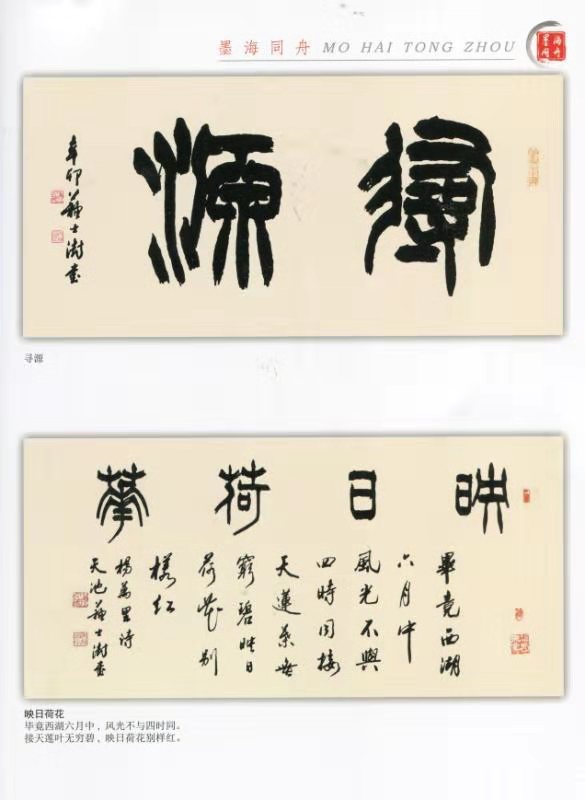 墨海同舟 MO HAI TONG ZHOU
墨海
同舟
尋源
辛卯蘇士澍書
寻源
映日荷華
畢竟西湖
六月中
風光不與
四時同接
天蓮葉無
窮碧映日
荷花別
樣紅
楊萬里詩
天池蘇士澍書
映日荷花
毕竟西湖六月中，风光不与四时同。
接天莲叶无穷碧，映日荷花别样红。